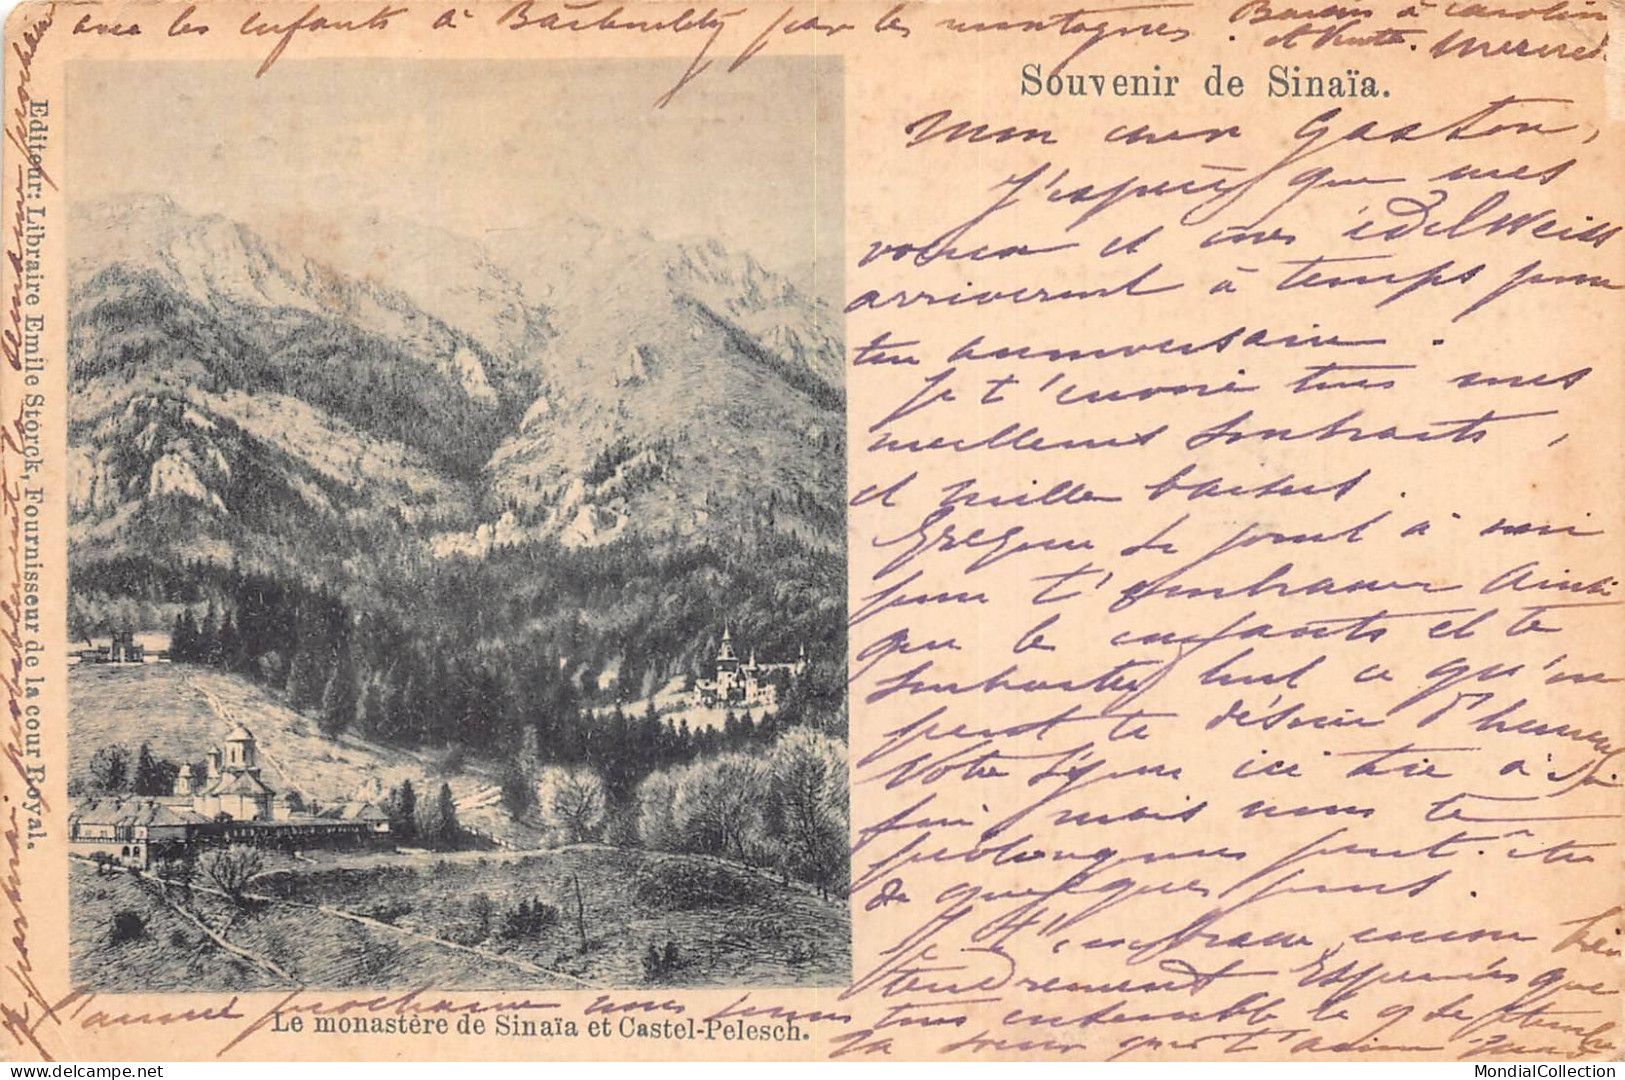 Souvenir de Sinaïa.
Mon cher Gaston,
J'espère que mes
voeux et mes édelweiss
arriveront à temps pour
ton anniversaire.
Je t'envoie tous mes
meilleurs souhaits,
et mille baisers.
se joint à moi
pour t'embrasser ainsi
que les enfants et te
souhaiter tout ce qu'on
peut te désirer d'heureux
Votre séjour ici tire à sa
fin mais nous le
prolongerons peut-être
de quelques jours.
Je t'embrasse, mon bien
tendrement Espérons que
l'année prochaine nous serons tous ensemble le 9 septembre
Ta soeur qui t'aime
Je partirai probablement demain
avec les enfants à par les montagnes.
Editeur: Libraire Emile Storck, Fournisseur de la cour Royal.
Le monastère de Sinaïa et Castel-Pelesch.
MondialCollection